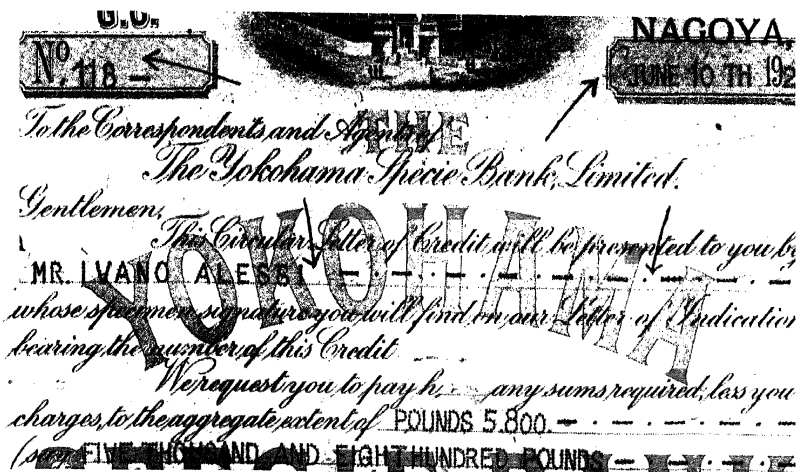 G.C.
NAGOYA,
No. 118 —
JUNE 10 TH 192
To the Correspondents and Agents of
THE
The Yokohama Specie Bank, Limited.
Gentlemen,
This Circular Letter of Credit will be presented to you by
YOKOHAMA
MR. IVANO ALESSI
whose specimen signature you will find on our Letter of Indication
bearing the number of this Credit
We request you to pay h any sums required, less you
charges, to the aggregate extent of POUNDS 5.800.
(say FIVE THOUSAND AND EIGHTHUNDRED POUNDS